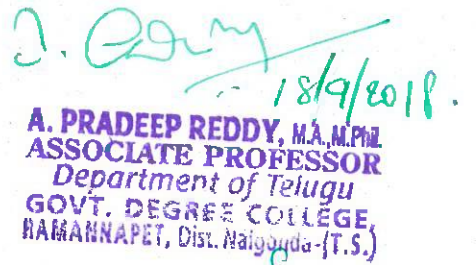 18/9/2018.
A. PRADEEP REDDY, M.A.,M.Phil.
ASSOCIATE PROFESSOR
Department of Telugu
GOVT. DEGREE COLLEGE,
RAMANNAPET, Dist. Nalgonda-(T.S.)